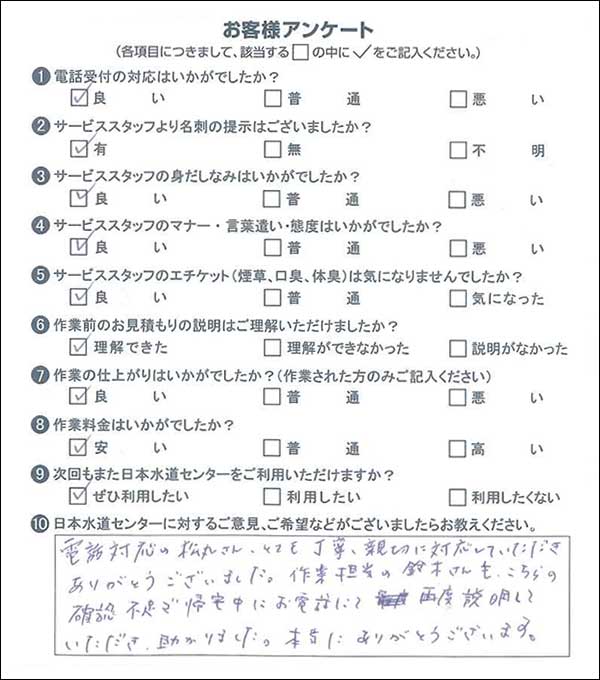 お客様アンケート
(各項目につきまして、該当する□の中に✓をご記入ください。)
❶ 電話受付の対応はいかがでしたか?
☑ 良い □ 普通 □ 悪い
❷ サービススタッフより名刺の提示はございましたか?
☑ 有 □ 無 □ 不明
❸ サービススタッフの身だしなみはいかがでしたか?
☑ 良い □ 普通 □ 悪い
❹ サービススタッフのマナー・言葉遣い・態度はいかがでしたか?
☑ 良い □ 普通 □ 悪い
❺ サービススタッフのエチケット(煙草、口臭、体臭)は気になりませんでしたか?
☑ 良い □ 普通 □ 気になった
❻ 作業前のお見積もりの説明はご理解いただけましたか?
☑ 理解できた □ 理解ができなかった □ 説明がなかった
❼ 作業の仕上がりはいかがでしたか?(作業された方のみご記入ください)
☑ 良い □ 普通 □ 悪い
❽ 作業料金はいかがでしたか?
☑ 安い □ 普通 □ 高い
❾ 次回もまた日本水道センターをご利用いただけますか?
☑ ぜひ利用したい □ 利用したい □ 利用したくない
❿ 日本水道センターに対するご意見、ご希望などがございましたらお教えください。
電話対応の松丸さん、とても丁寧、親切に対応していただき
ありがとうございました。作業担当の鈴木さんも、こちらの
確認不足で帰宅中にお電話にて 再度説明して
いただき、助かりました。本当にありがとうございます。